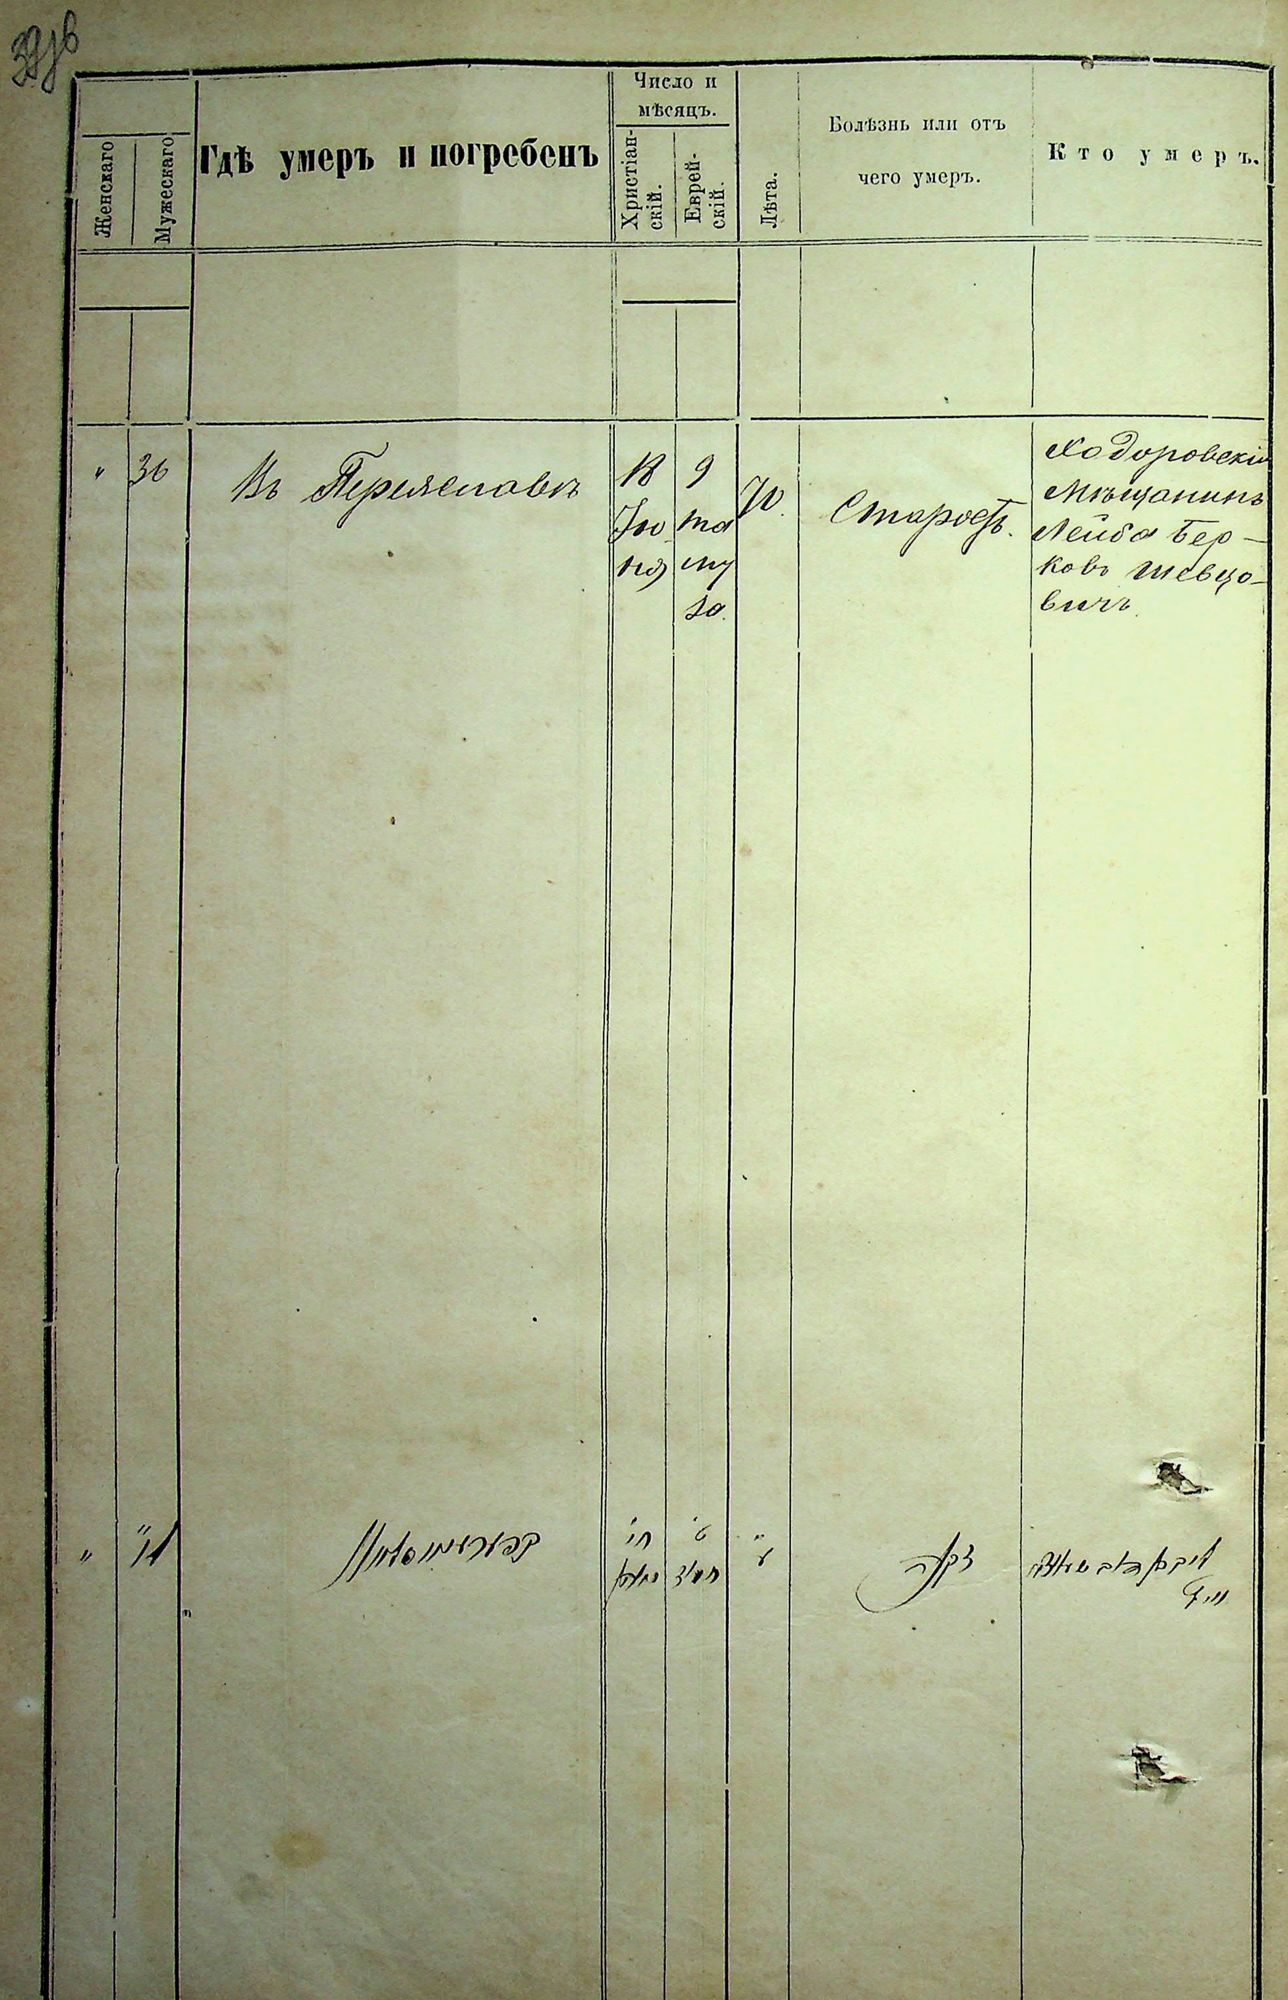 Женскаго
Мужескаго
Гдѣ умеръ и погребенъ
Число и
мѣсяцъ.
Христіан-
скій.
Еврей-
скій.
Лѣта.
Болѣзнь или отъ
чего умеръ.
Кто умеръ.
" 36
Въ Переяславѣ
18
Ію
ня
9
та
му
за.
70.
Старость.
Ходоровскій
Мѣщанинъ
Лейба Бер-
ковъ Шевцо-
вичъ
" "
חי
יוני
ט
תמוז
ע
זקנה